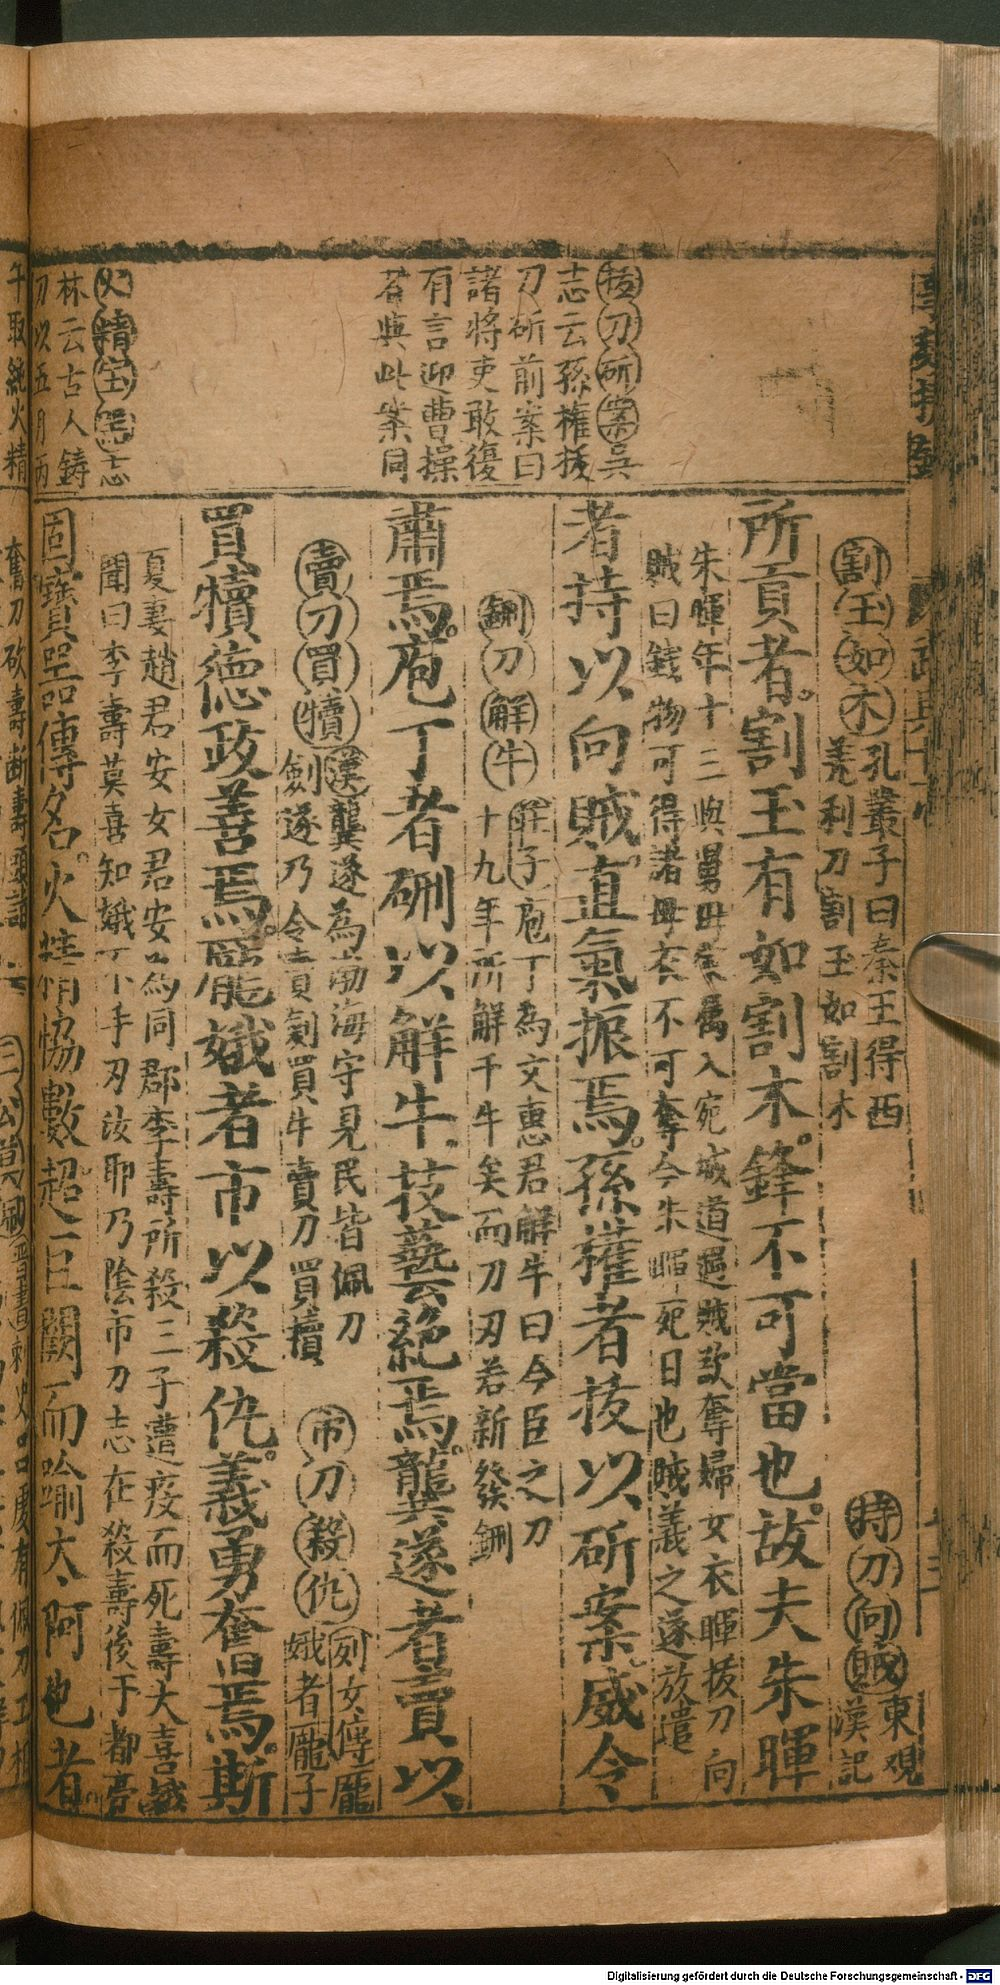 拔刀斫案吳
志云孫權拔
刀斫前案曰
諸將吏敢復
有言迎曹操
者與此案同
火精宝器志
林云古人鋳
刀以五月丙
午取純火精
割玉如木孔叢子曰秦王得西
羗利刀割玉如割木
持刀向賊東观
漢記
所貢者割玉有如割木鋒不可當也故夫朱暉
朱暉年十三與舅母家属入宛城道遇賊欲奪婦女衣暉拔刀向
賊曰錢物可得諸母衣不可奪今朱暉死日也賊義之遂放遣
者持以向賊直氣振焉孫權者拔以斫案威令
硎刀解牛莊子庖丁為文惠君解牛曰今臣之刀
十九年所解千牛矣而刀刃若新發硎
肅焉庖丁者硎以解牛技藝絕焉龔遂者賣以
賣刀買犢漢龔遂為渤海守見民皆佩刀
劍遂乃令賣劍買牛賣刀買犢
市刀殺仇列女傳龐
娥者龐子
買犢德政善焉龐娥者市以殺仇義勇奮焉斯
夏妻趙君安女君安為同郡李壽所殺三子遭疫而死壽大喜娥
聞曰李壽莫喜知娥不手刃汝耶乃陰市刀志在殺壽後于都亭
固寶器傳名火精協數超巨闕而喻太阿也者
奮刀砍壽断壽頭詣
Digitalisierung gefördert durch die Deutsche Forschungsgemeinschaft - DFG